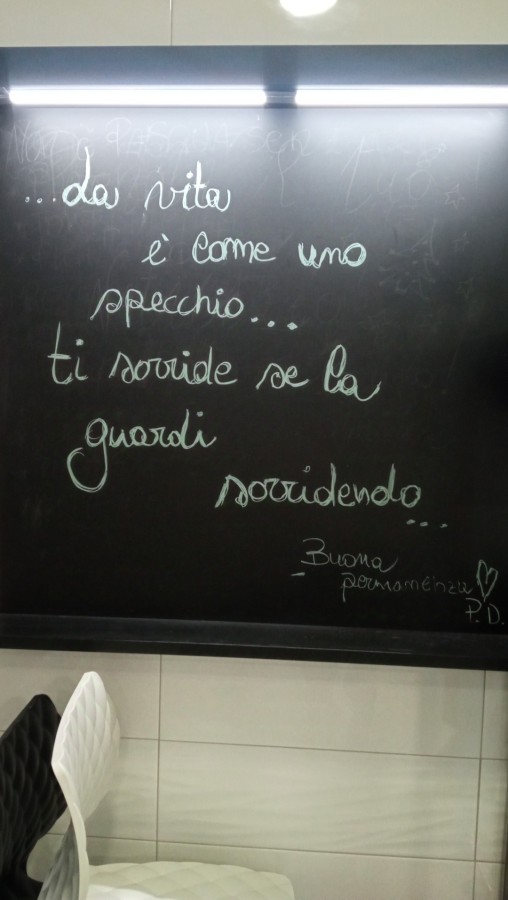 ...la vita
è come uno
specchio...
ti sorride se la
guardi
sorridendo...
Buona
permanenza
P.D.